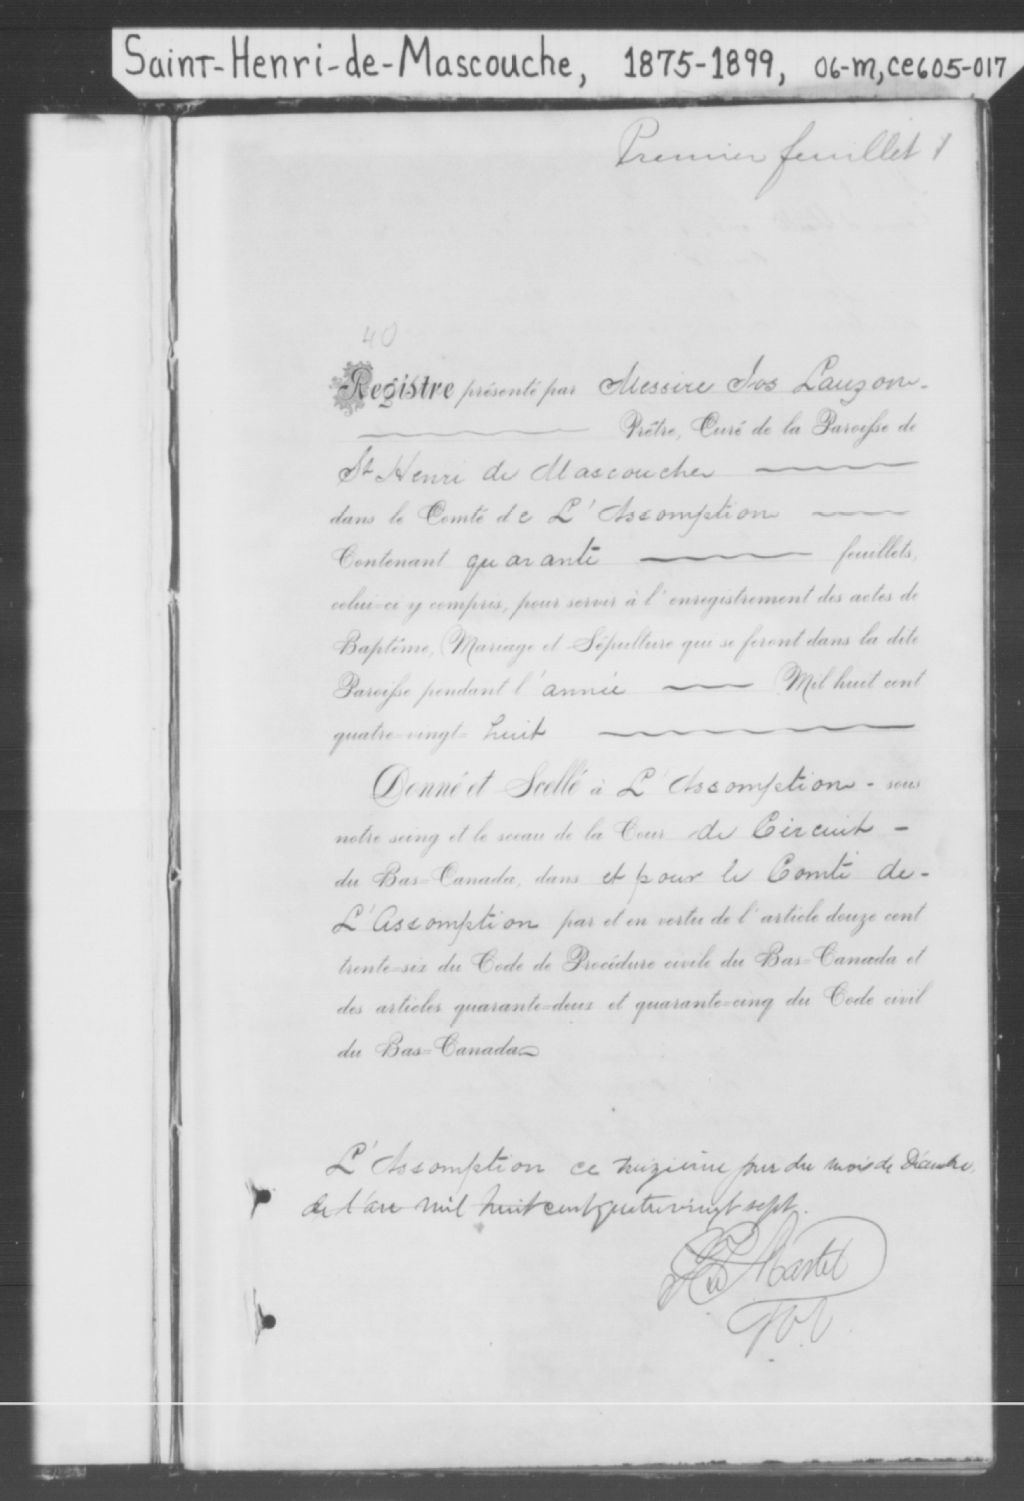 Saint-Henri-de-Mascouche, 1875-1899, 06-M,CE605-017
Premier feuillet
40
Registre présenté par Messire Jos Lauzon
Prêtre, Curé de la Paroisse de
St Henri de Mascouche
dans le Comté de L'Assomption
Contenant quarante feuillets,
celui-ci y compris, pour servir à l'enregistrement des actes de
Baptême, Mariage et Sépulture qui se feront dans la dite
Paroisse pendant l'année Mil huit cent
quatre-vingt-huit
Donné et Scellé à L'Assomption - sous
notre seing et le sceau de la Cour de Circuit -
du Bas-Canada, dans et pour le Comté de -
L'Assomption par et en vertu de l'article douze cent
trente-six du Code de Procédure civile du Bas-Canada et
des articles quarante-deux et quarante-cinq du Code civil
du Bas-Canada
L'Assomption ce jour du mois de Décembre
de l'an mil huit cent quatrevingt sept.
Martel